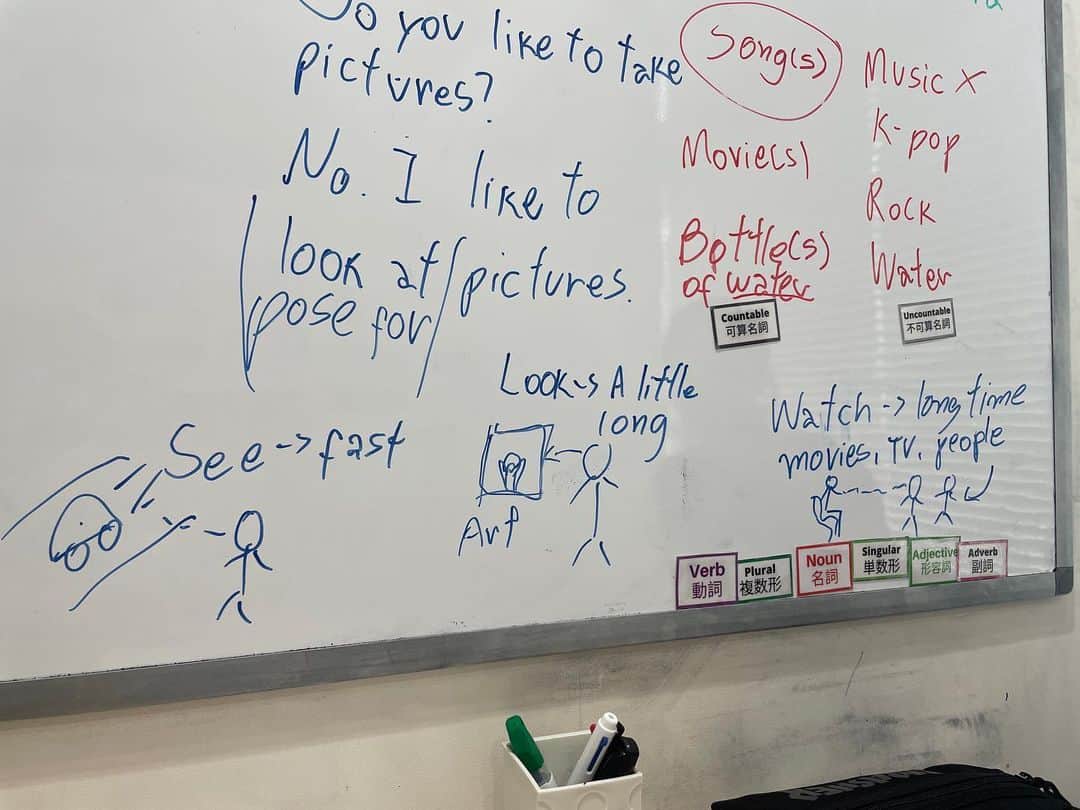 Do you like to take
pictures?
No. I like to
look at / pictures.
pose for
Song(s)
Movie(s)
Bottle(s)
of water
Countable
可算名詞
Music ×
K-pop
Rock
Water
Uncountable
不可算名詞
See -> fast
Look -> A little
long
Art
Watch -> long time
movies, TV, people
Verb
動詞
Plural
複数形
Noun
名詞
Singular
単数形
Adjective
形容詞
Adverb
副詞